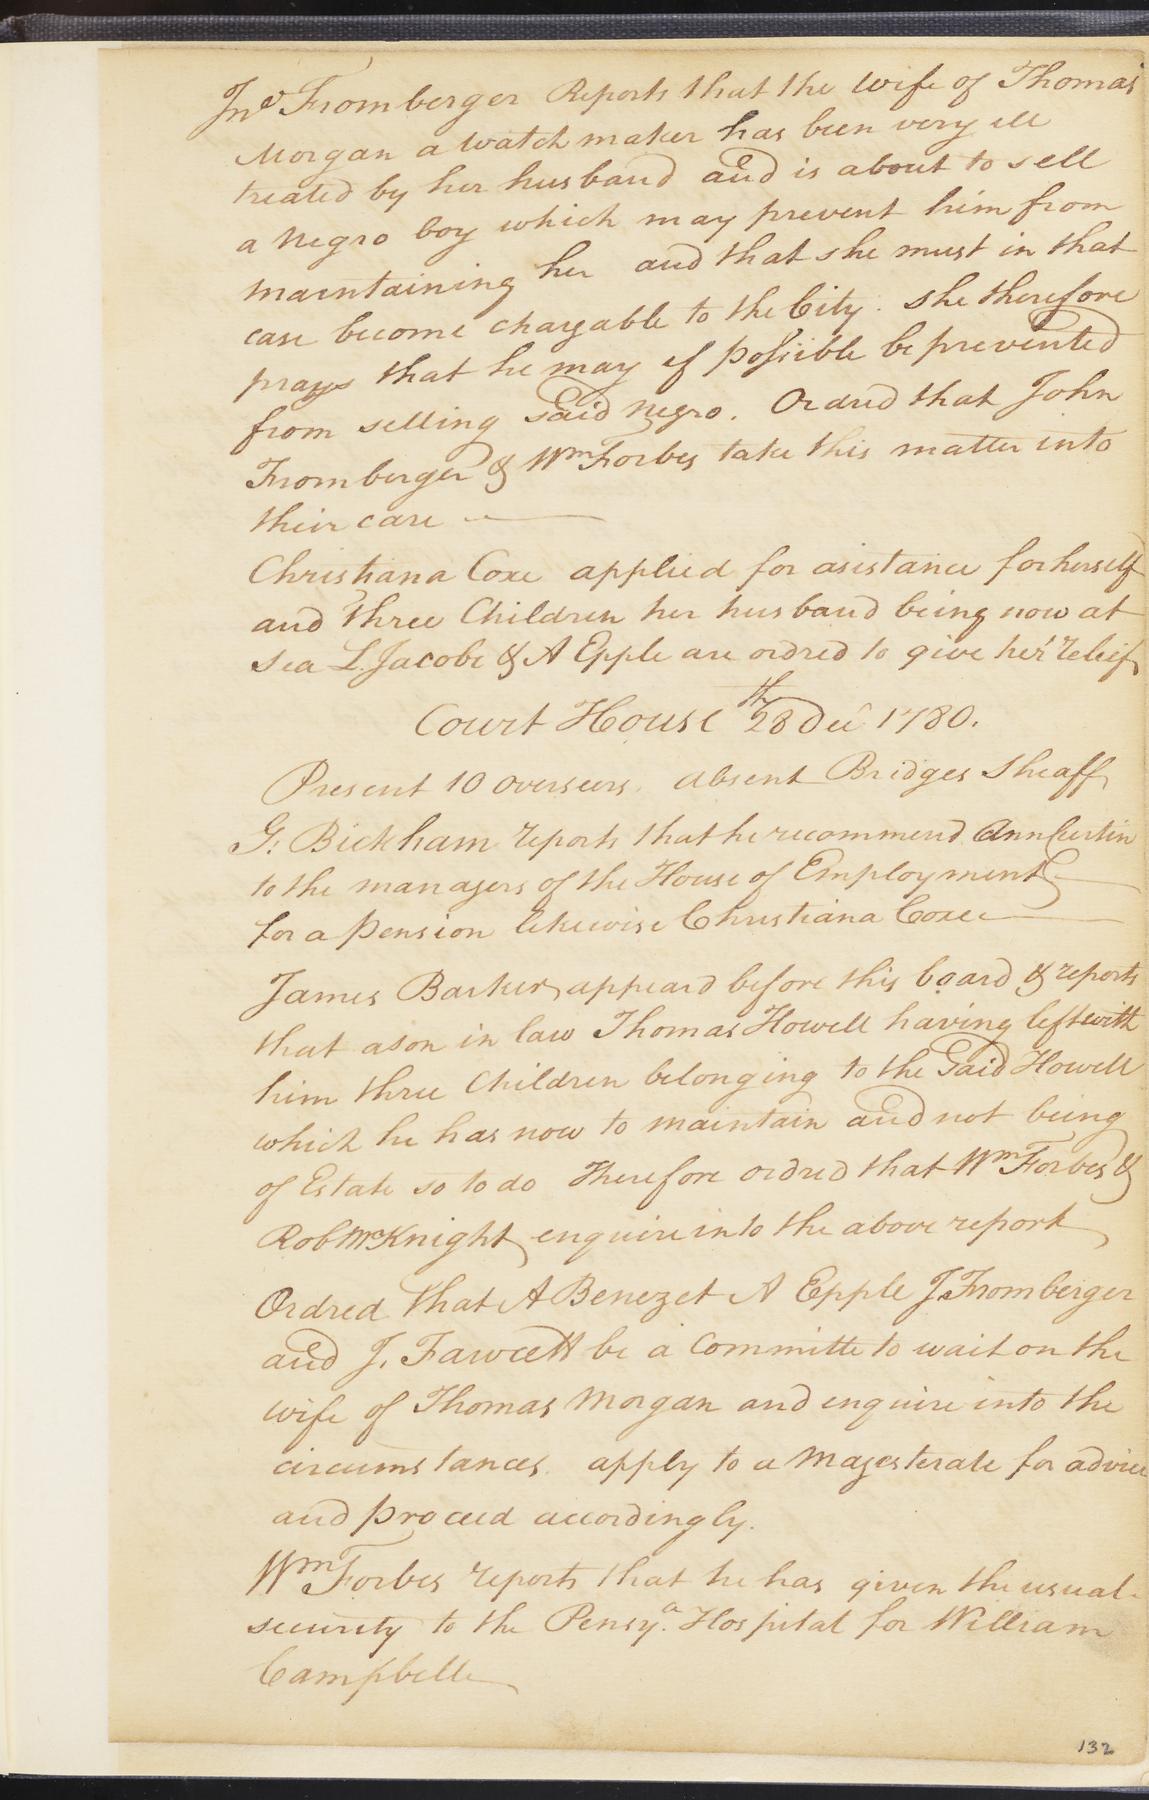 Jno Fromberger Reports that the wife of Thomas
Morgan a watch maker has been very ill
treated by her husband and is about to sell
a Negro boy which may prevent him from
maintaining her and that she must in that
case become chargable to the City. she therefore
prays that he may if possible be prevented
from selling said Negro. Ordred that John
Fromberger & Wm Forbes take this matter into
their care
Christiana Coxe applied for asistance for herself
and three Children her husband being now at
sea L. Jacobe & A Epple are ordred to give her releif
Court House 28th Dec 1780.
Present 10 overseers. absent Bridges Sheaff
G. Bickham reports that he recommend Ann Curtin
to the managers of the House of Employment
for a Pension likewise Christiana Coxe
James Barker appeard before this board & reports
that a son in law Thomas Howell having left with
him three Children belonging to the said Howell
which he has now to maintain and not being
of Estate so to do Therefore ordred that Wm Forbes &
Rob McKnight enquire into the above report
Ordred that A Benezet A Epple J. Fromberger
and J. Fawcett be a Committe to wait on the
wife of Thomas Morgan and enquire into the
circumstances. apply to a Magesterate for advice
and proceed accordingly.
Wm Forbes reports that he has given the usual
security to the Pensya. Hospital for William
Campbelle
132